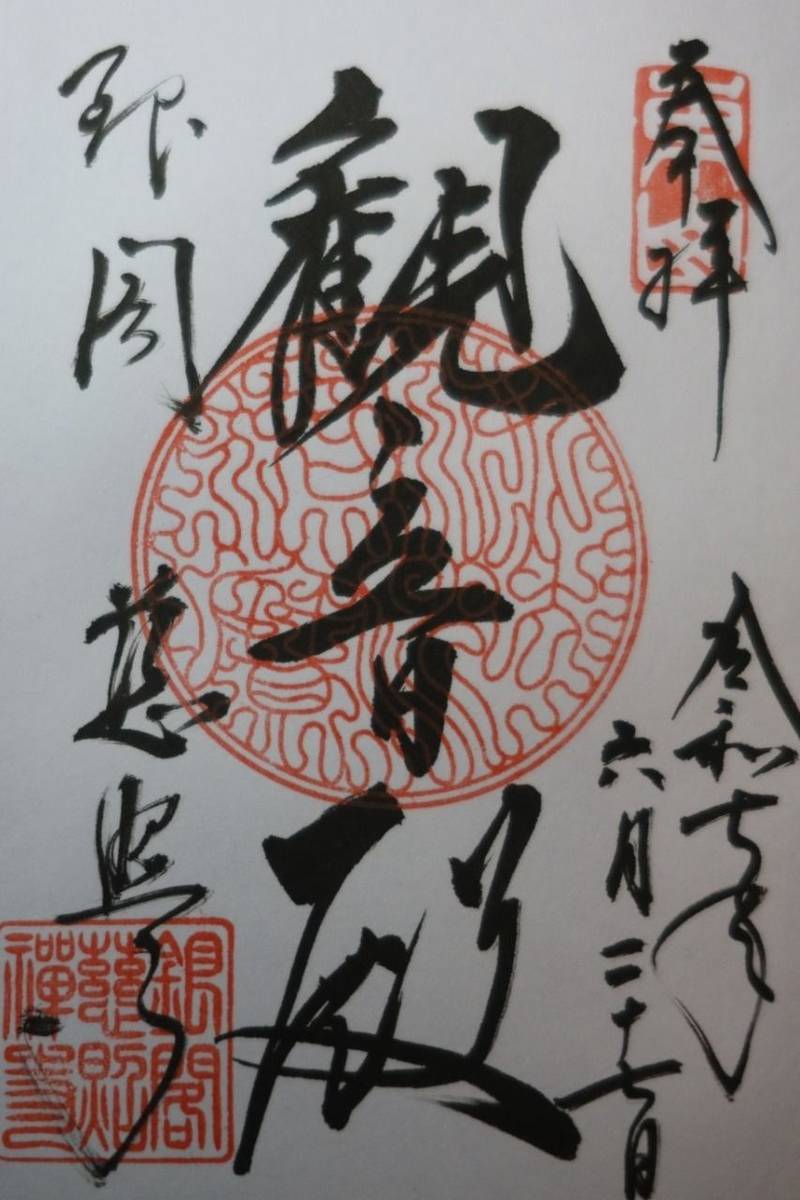 奉拝
令和七年
六月二十七日
觀音殿
銀閣
慈照寺
銀閣
慈照
禅寺